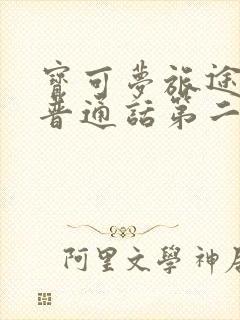 寶可夢旅途
普通話第二
阿里文學神居